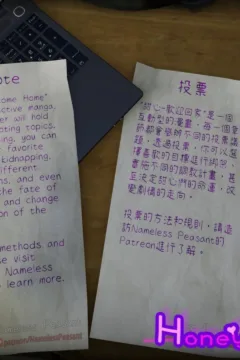 ote
ome Home"
ctive manga,
er will hold
oting topics.
ing, you can
favorite
kidnapping,
different
ns, and even
the fate of
and change
on of the
methods and
se visit
Nameless
learn more.
投票
"甜心~歡迎回家"是一個
互動型的漫畫，每一個章
節都會舉辦不同的投票議
題，透過投票，你可以選
擇喜歡的目標進行綁架，
實施不同的調教計畫，甚
至決定甜心們的命運，改
變劇情的走向。
投票的方法和規則，請造
訪Nameless Peasant的
Patreon進行了解。
Hone